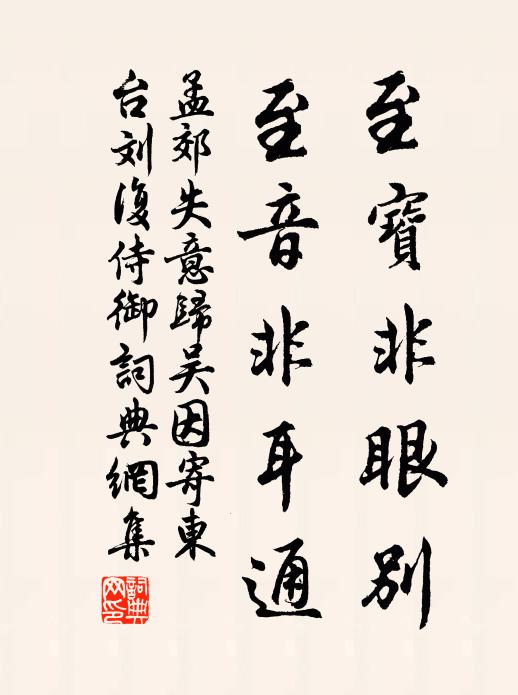 至寶非眼別
至音非耳通
孟郊失意歸吴因寄東
台刘復侍御詞典網集